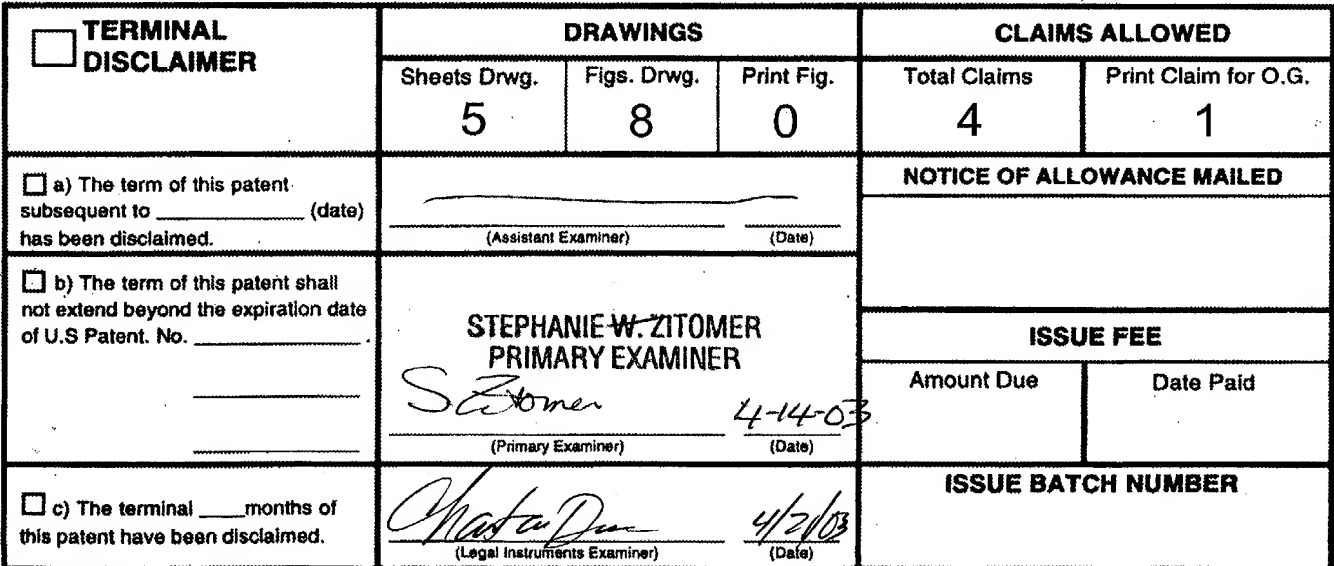 TERMINAL DISCLAIMER
DRAWINGS
CLAIMS ALLOWED
Sheets Drwg. Figs. Drwg. Print Fig. Total Claims Print Claim for O.G.
5 8 0 4 1
a) The term of this patent
subsequent to ____________ (date)
has been disclaimed.
(Assistant Examiner) (Date)
NOTICE OF ALLOWANCE MAILED
b) The term of this patent shall
not extend beyond the expiration date
of U.S Patent. No. ____________ .
STEPHANIE W. ZITOMER
PRIMARY EXAMINER
S Zitomer 4-14-03
(Primary Examiner) (Date)
ISSUE FEE
Amount Due Date Paid
c) The terminal ____months of
this patent have been disclaimed.
4/21/03
(Legal Instruments Examiner) (Date)
ISSUE BATCH NUMBER